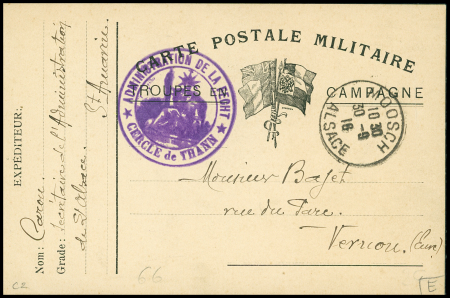 CARTE POSTALE MILITAIRE
TROUPES EN CAMPAGNE
ADMINISTRATION DE LA
CERCLE de THANN
MOOSCH
10 30
30 -9
16
ALSACE
EXPÉDITEUR:
Nom: Caron
Grade: Secrétaire de l'Administration
de l'Alsace. St Amarin
Monsieur Bajet
rue du Parc
Vernon (Eure)
C2
66
E